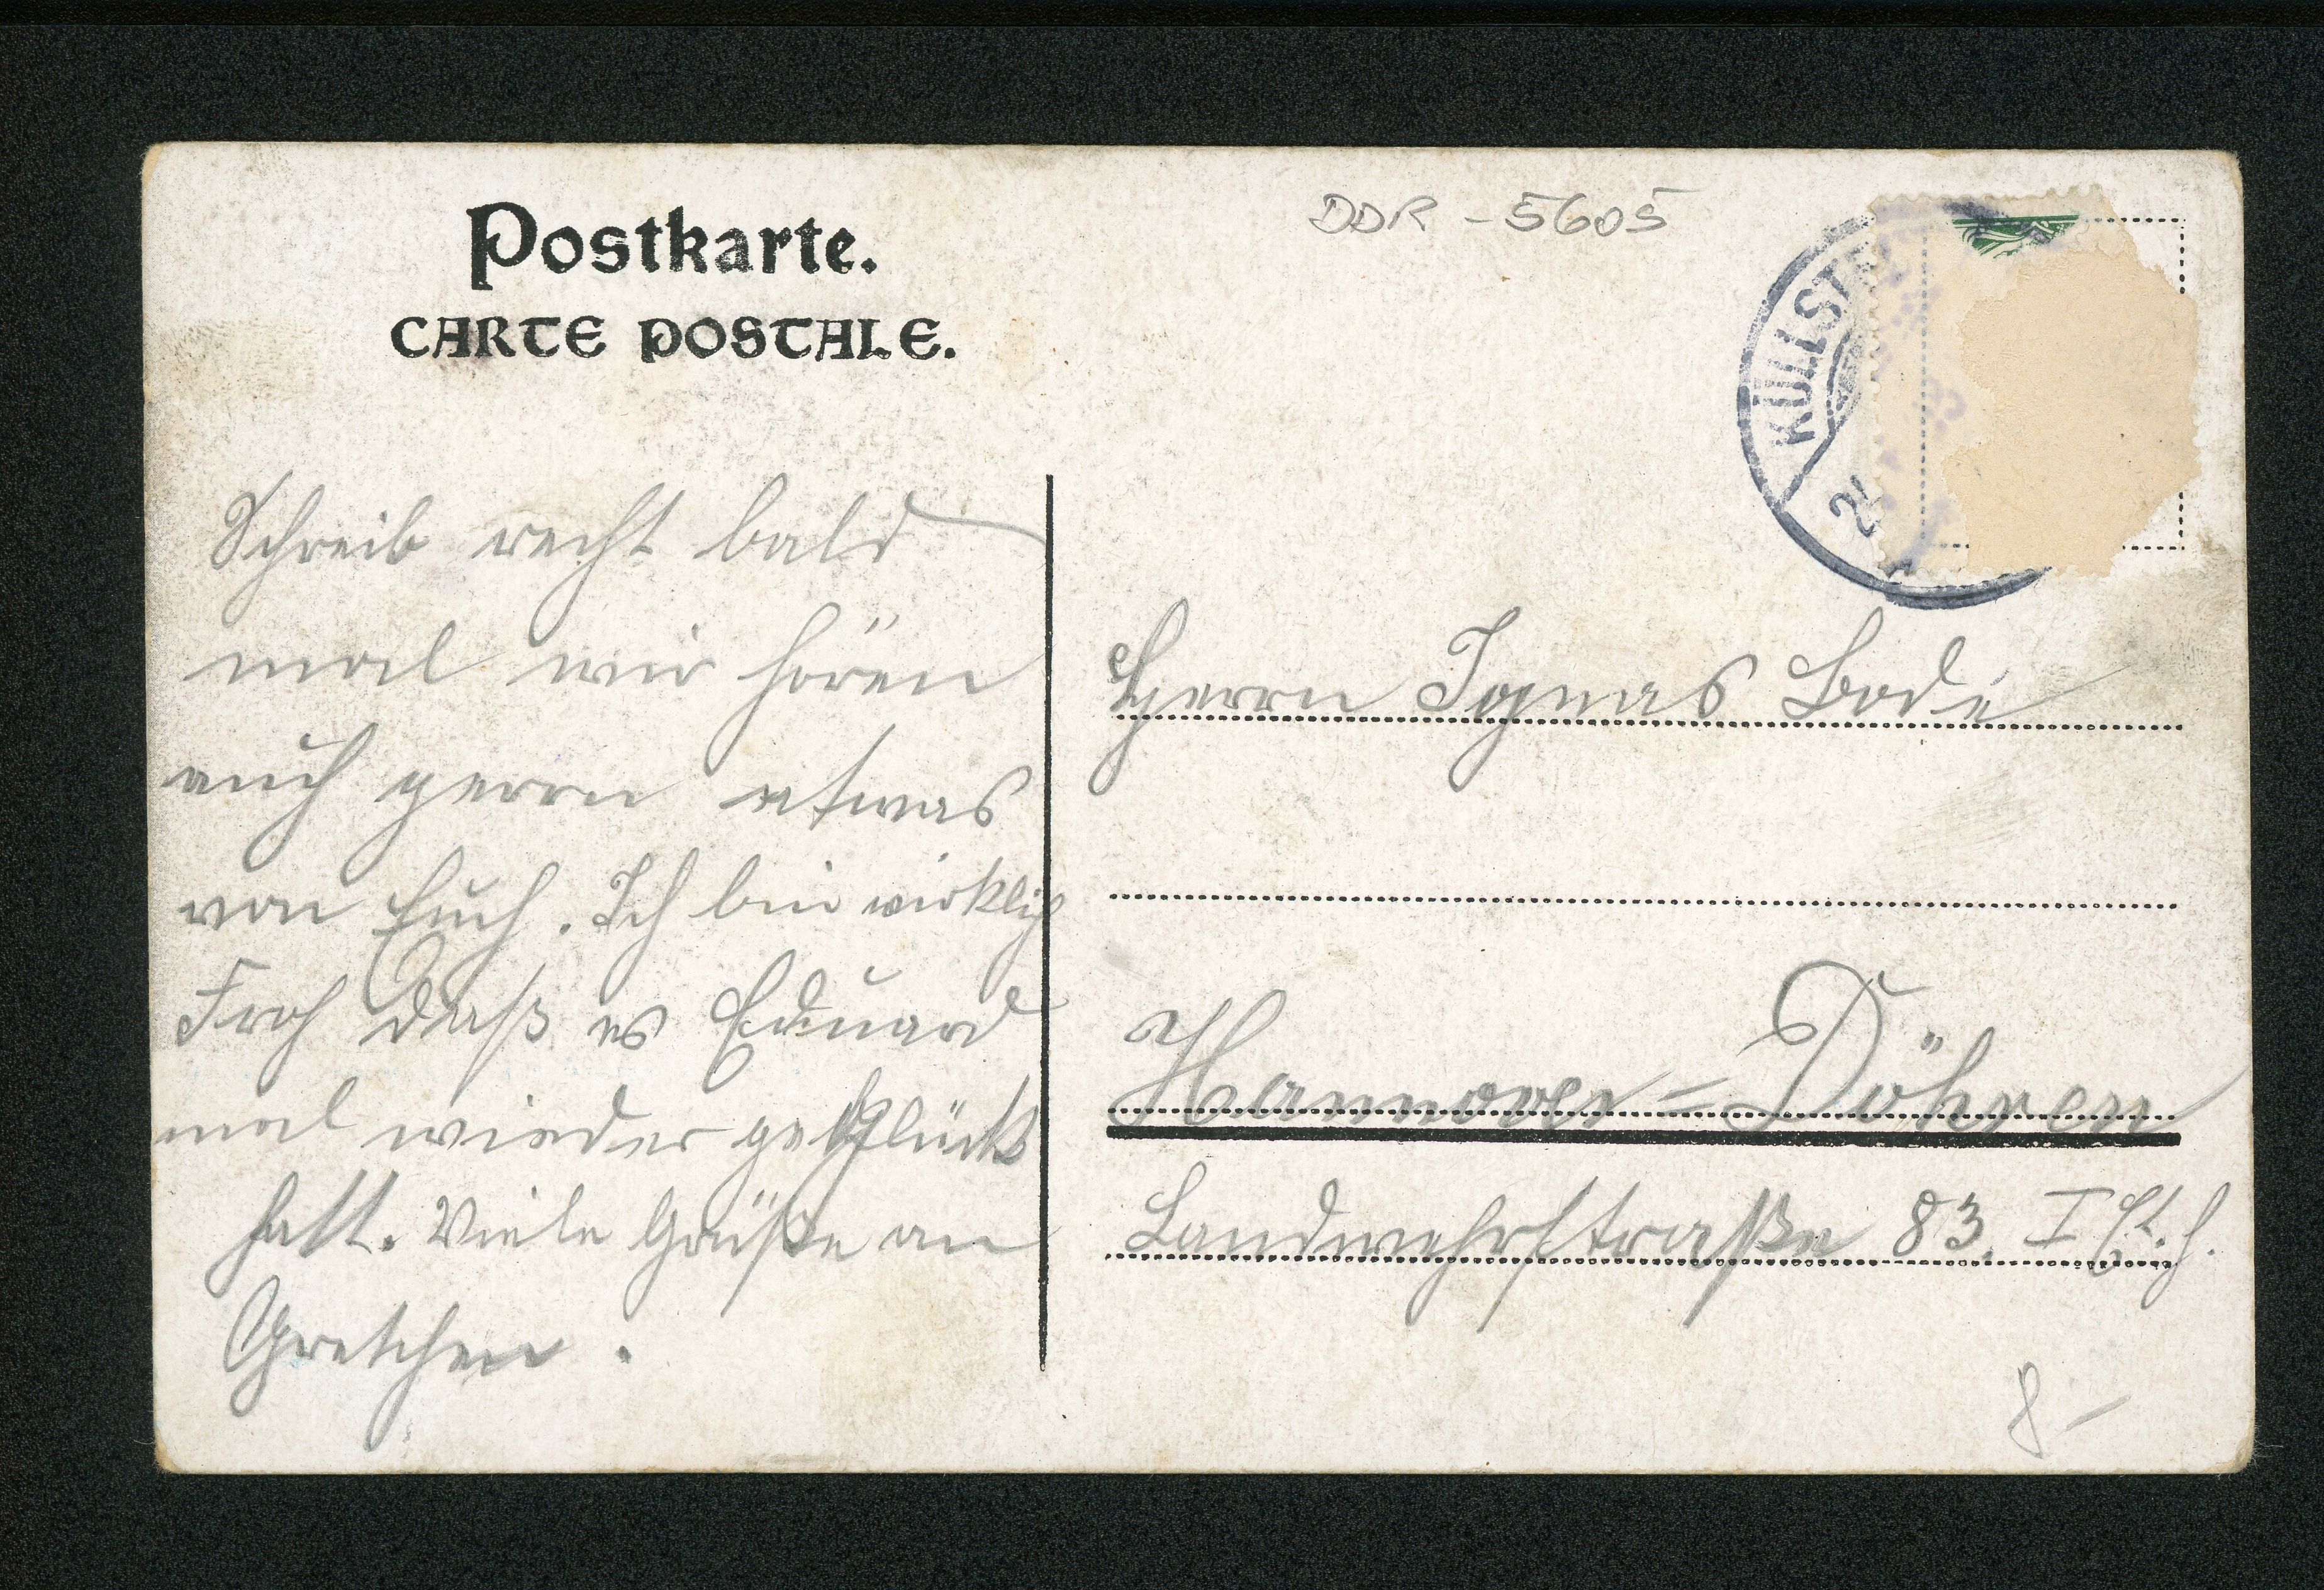 Postkarte.
CARTE POSTALE.
DDR - 5605
KÜLLSTE
2
Schreib recht bald
mal wir hören
auch gerrn etwas
von Euch. Ich bin wirklich
Froh daß es Eduard
mal wieder geglückt
hatt. Viele Grüße an
Gretchen.
Herrn Ignas Bode
Hannover = Döhren
Landwehrstraße 83. I
8 -